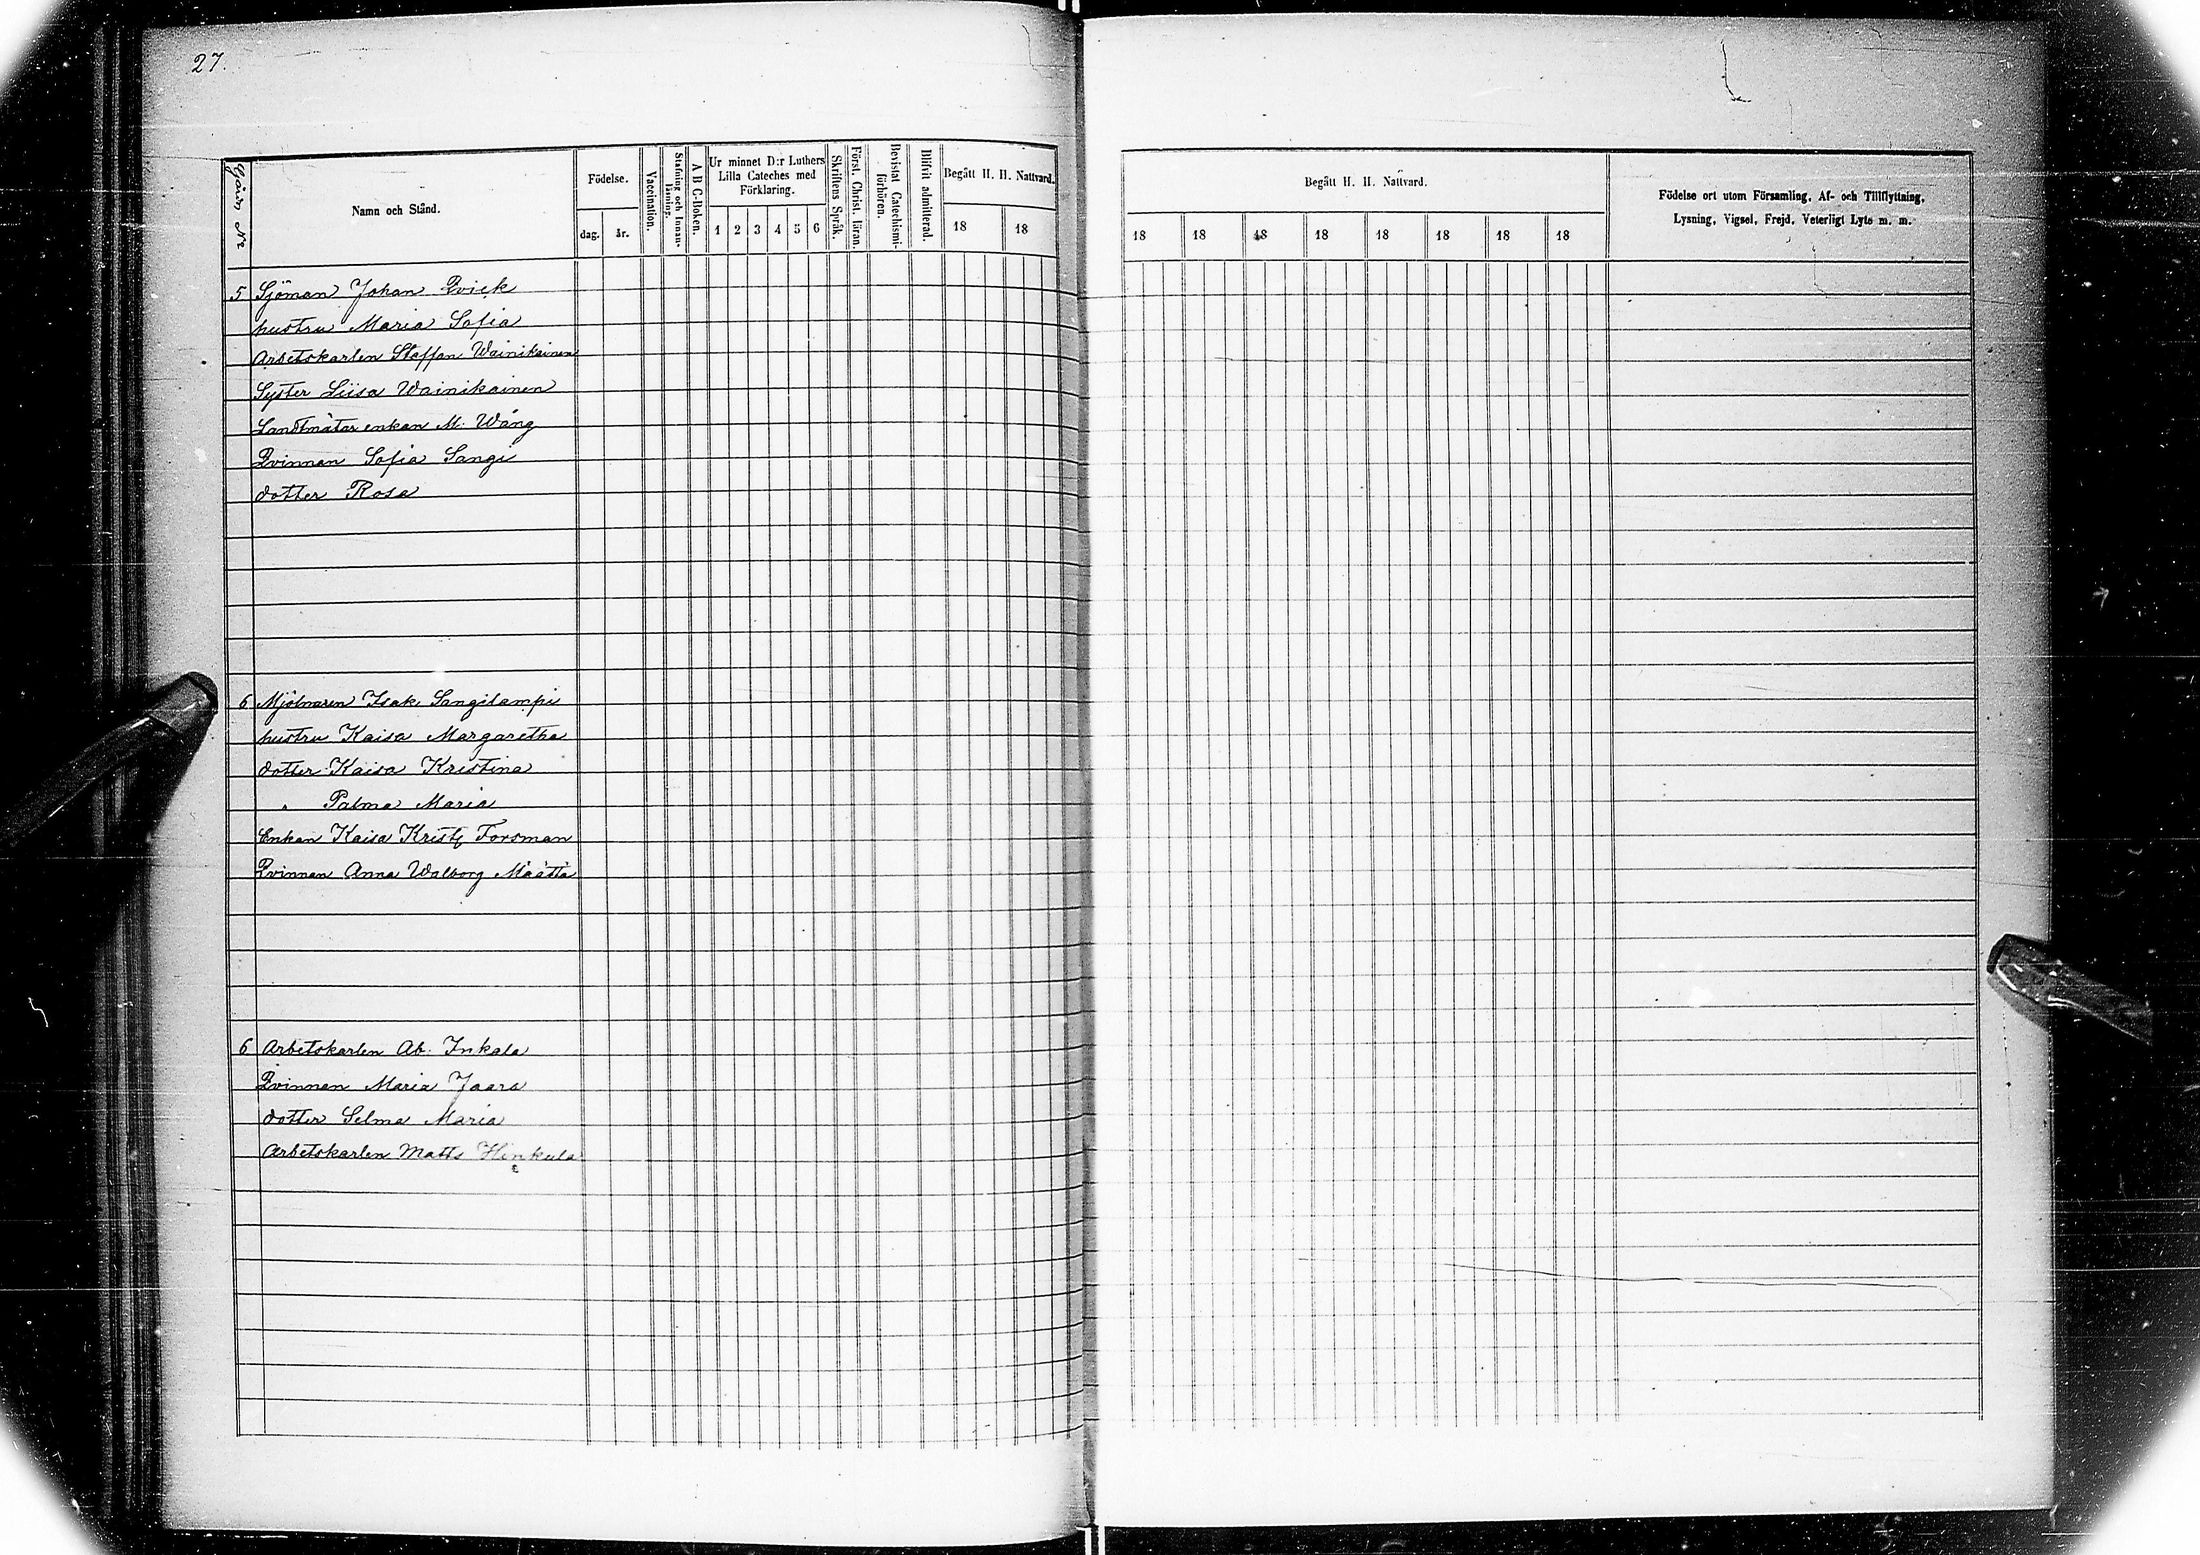 27.
Gård No
Namn och Stånd.
Födelse.
dag.
år.
Vaccination.
Stafning och Innan-
läsning.
A B C-Boken.
Ur minnet D:r Luthers
Lilla Cateches med
Förklaring.
1 2 3 4 5 6
Skriftens Språk.
Först. Christ. läran.
Bevistat Catechismi-
förhören.
Blifvit admitterad.
Begått H. H. Nattvard.
18 18
Begått H. H. Nattvard.
18 18 18 18 18 18 18 18
Födelse ort utom Församling, Af- och Tillflyttning,
Lysning, Vigsel, Frejd, Veterligt Lyte m. m.
5 Sjöman Johan Qvick
hustru Maria Sofia
Arbetskarlen Staffan Wainikainen
Syster Liisa Wainikainen
Landtmätar enkan M. Wång
Qvinnan Sofia Sangi
dotter Rosa
6 Mjölnaren Isak Sangilampi
hustru Kaisa Margaretha
dotter Kaisa Kristina
" Palma Maria
Enkan Kaisa Krist. Forsman
Qvinnan Anna Walborg Määttä
6 Arbetskarlen Ab. Inkala
Qvinnan Maria Jaara
dotter Selma Maria
Arbetskarlen Matts Hinkula